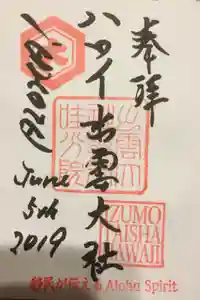 奉拝
ハワイ出雲大社
(ALOHA)
June
5th
2019
IZUMO
TAISHA
HAWAII
移民が伝える Aloha Spirit